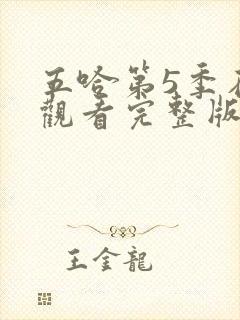 五哈第5季
觀看完整版
王金龍